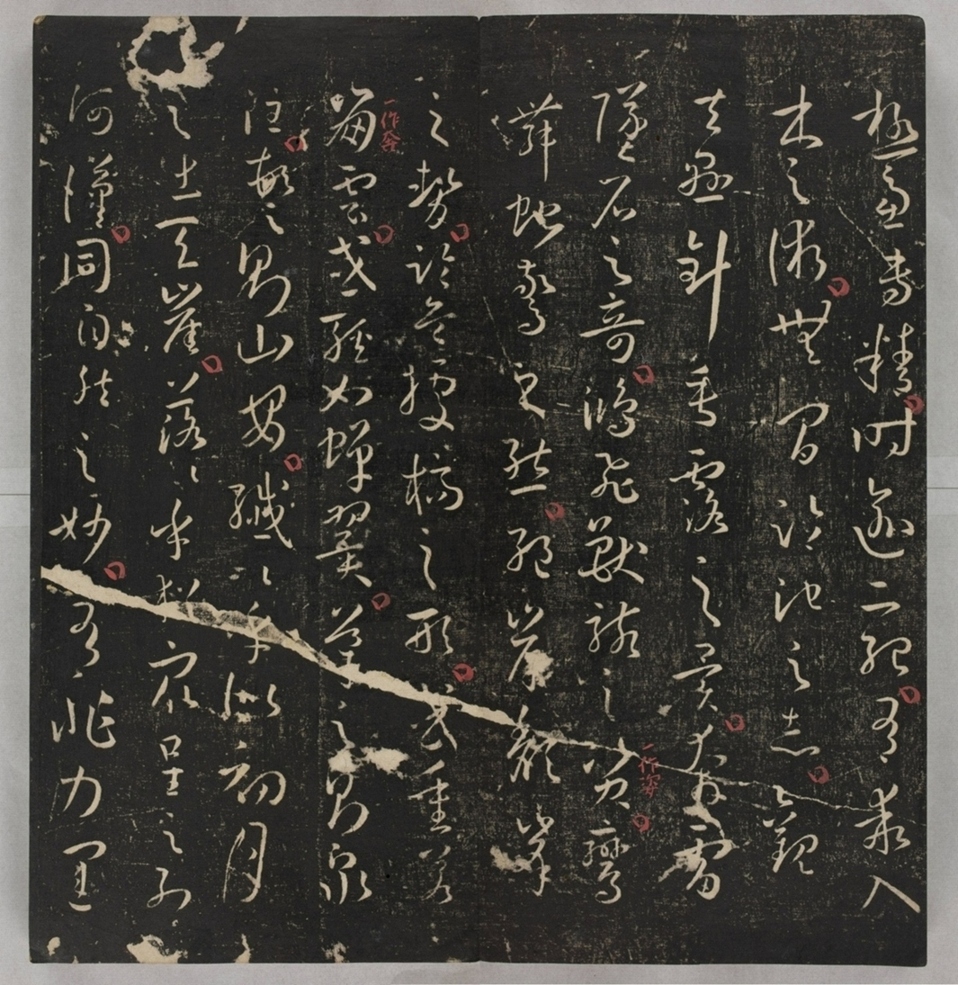 極慮專精時逾二紀有乖入
木之術無間臨池之志觀
夫懸針垂露之異奔雷
墜石之奇鴻飛獸駭之資鸞
舞蛇驚之態絕岸頹峯
之勢臨危據槁之形或重若
崩雲或輕如蟬翼導之則泉
注頓之則山安纖纖乎似初月
之出天崖落落乎猶眾星之列
河漢同自然之妙有非力運